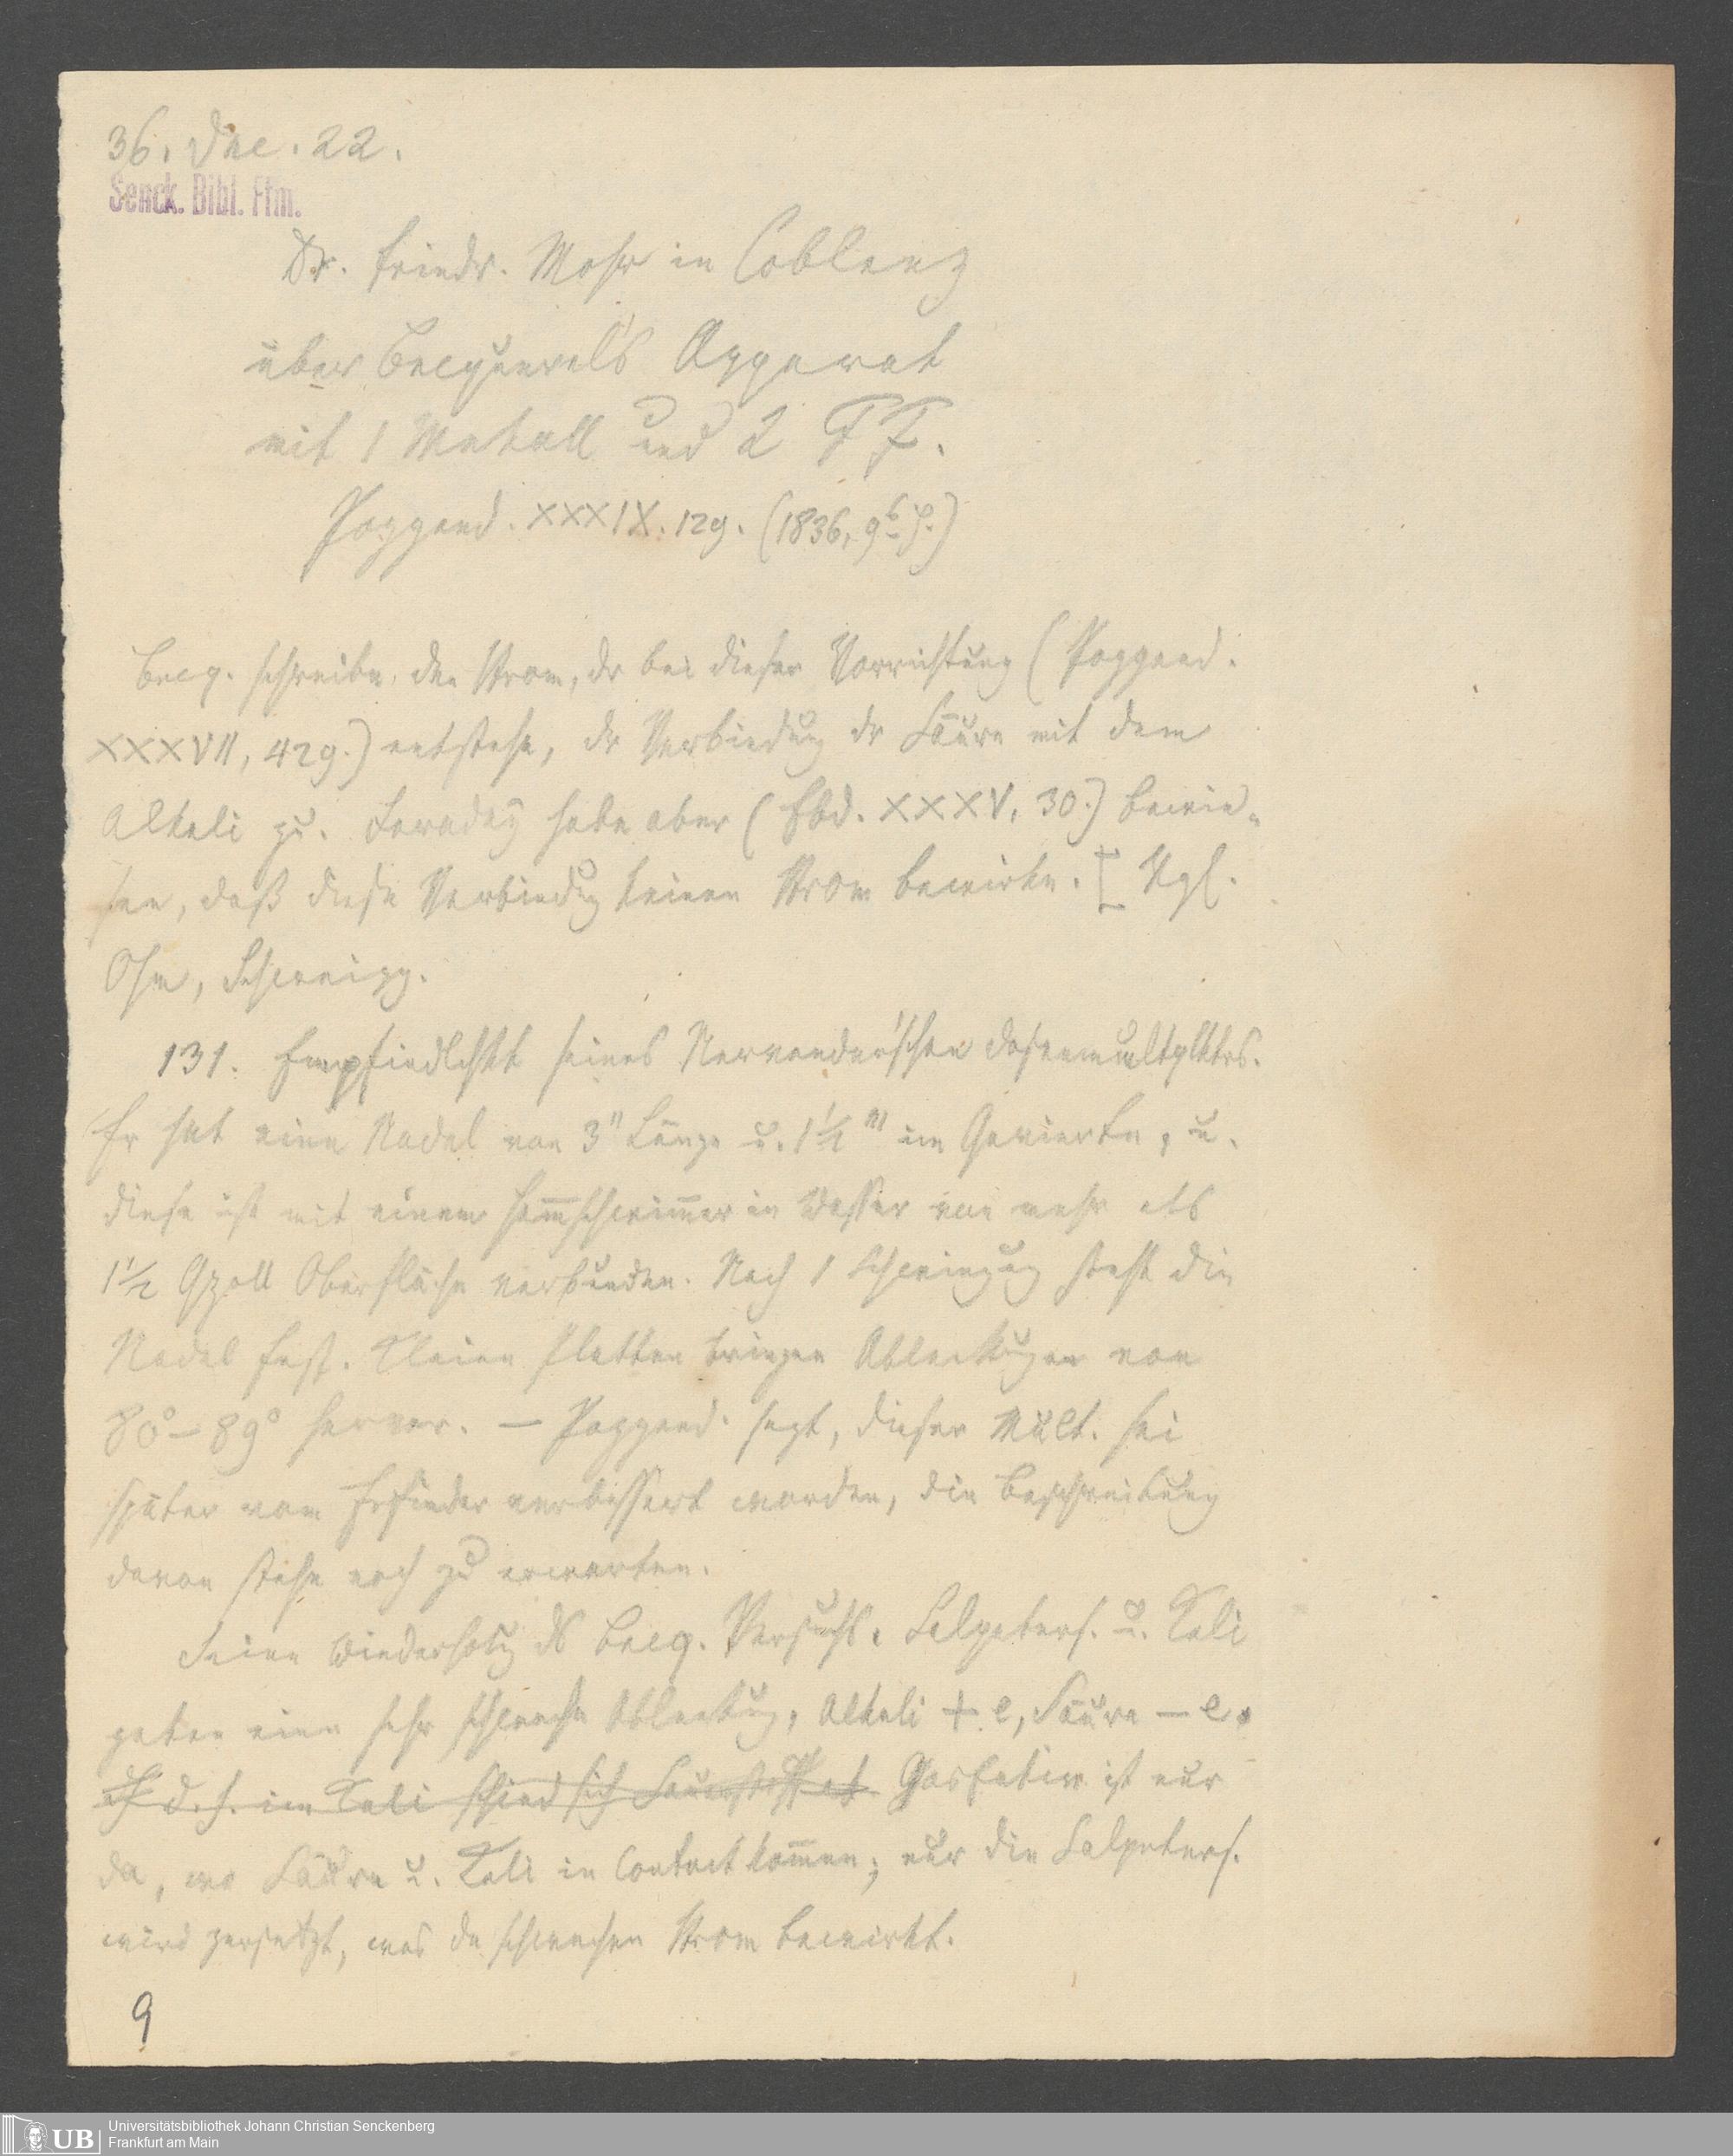 36. Dec. 22.
Senck. Bibl. Ffm.
Dr. Friedr. Mohr in Coblenz
über Becquerel's Apparat
mit 1 Metall und 2 FF.
Poggend. XXXIX. 129. (1836, 9
Becq. schreibe den Strom, der bei dieser Vorrichtung (Poggend.
XXXVII, 429.) entstehe, der Verbindung der Säure mit dem
Alkali zu. Faraday habe aber (Ebd. XXXV, 30.) bewie-
sen, daß diese Verbindg keinen Strom bewirke. [Vgl.
Ohm, Schweigg.
131. Empfindlchkt seines Nervander'schen Dosenmultplktrs.
Er hat eine Nadel von 3" Länge u. 1½''' im Gevierte, u.
diese ist mit einem Hem̅schwim̅er in Wasser von mehr als
1½ Qzoll Oberfläche verbunden. Nach 1 Schwingug steht die
Nadel fest. Kleine Platten bringen Ablenkugen von
80°–89° hervor. — Poggend. sagt, dieser Mult. sei
später vom Erfinder verbessert worden, die Beschreibung
davon stehe noch zu erwarten.
Seine Wiederholg ds Becq. Versuchs. Salpeters. u. Kali
geben eine sehr schwache Ablenkug, Alkali + e, Säure — e.
d. h. im Kali schied sich Sauerstoff ab Gasentwi ist nur
da, wo Säure u. Kali in Contact kom̅en; nur die Salpeters.
wird zersetzt, was den schwachen Strom bewirkt.
9
UB
Universitätsbibliothek Johann Christian Senckenberg
Frankfurt am Main